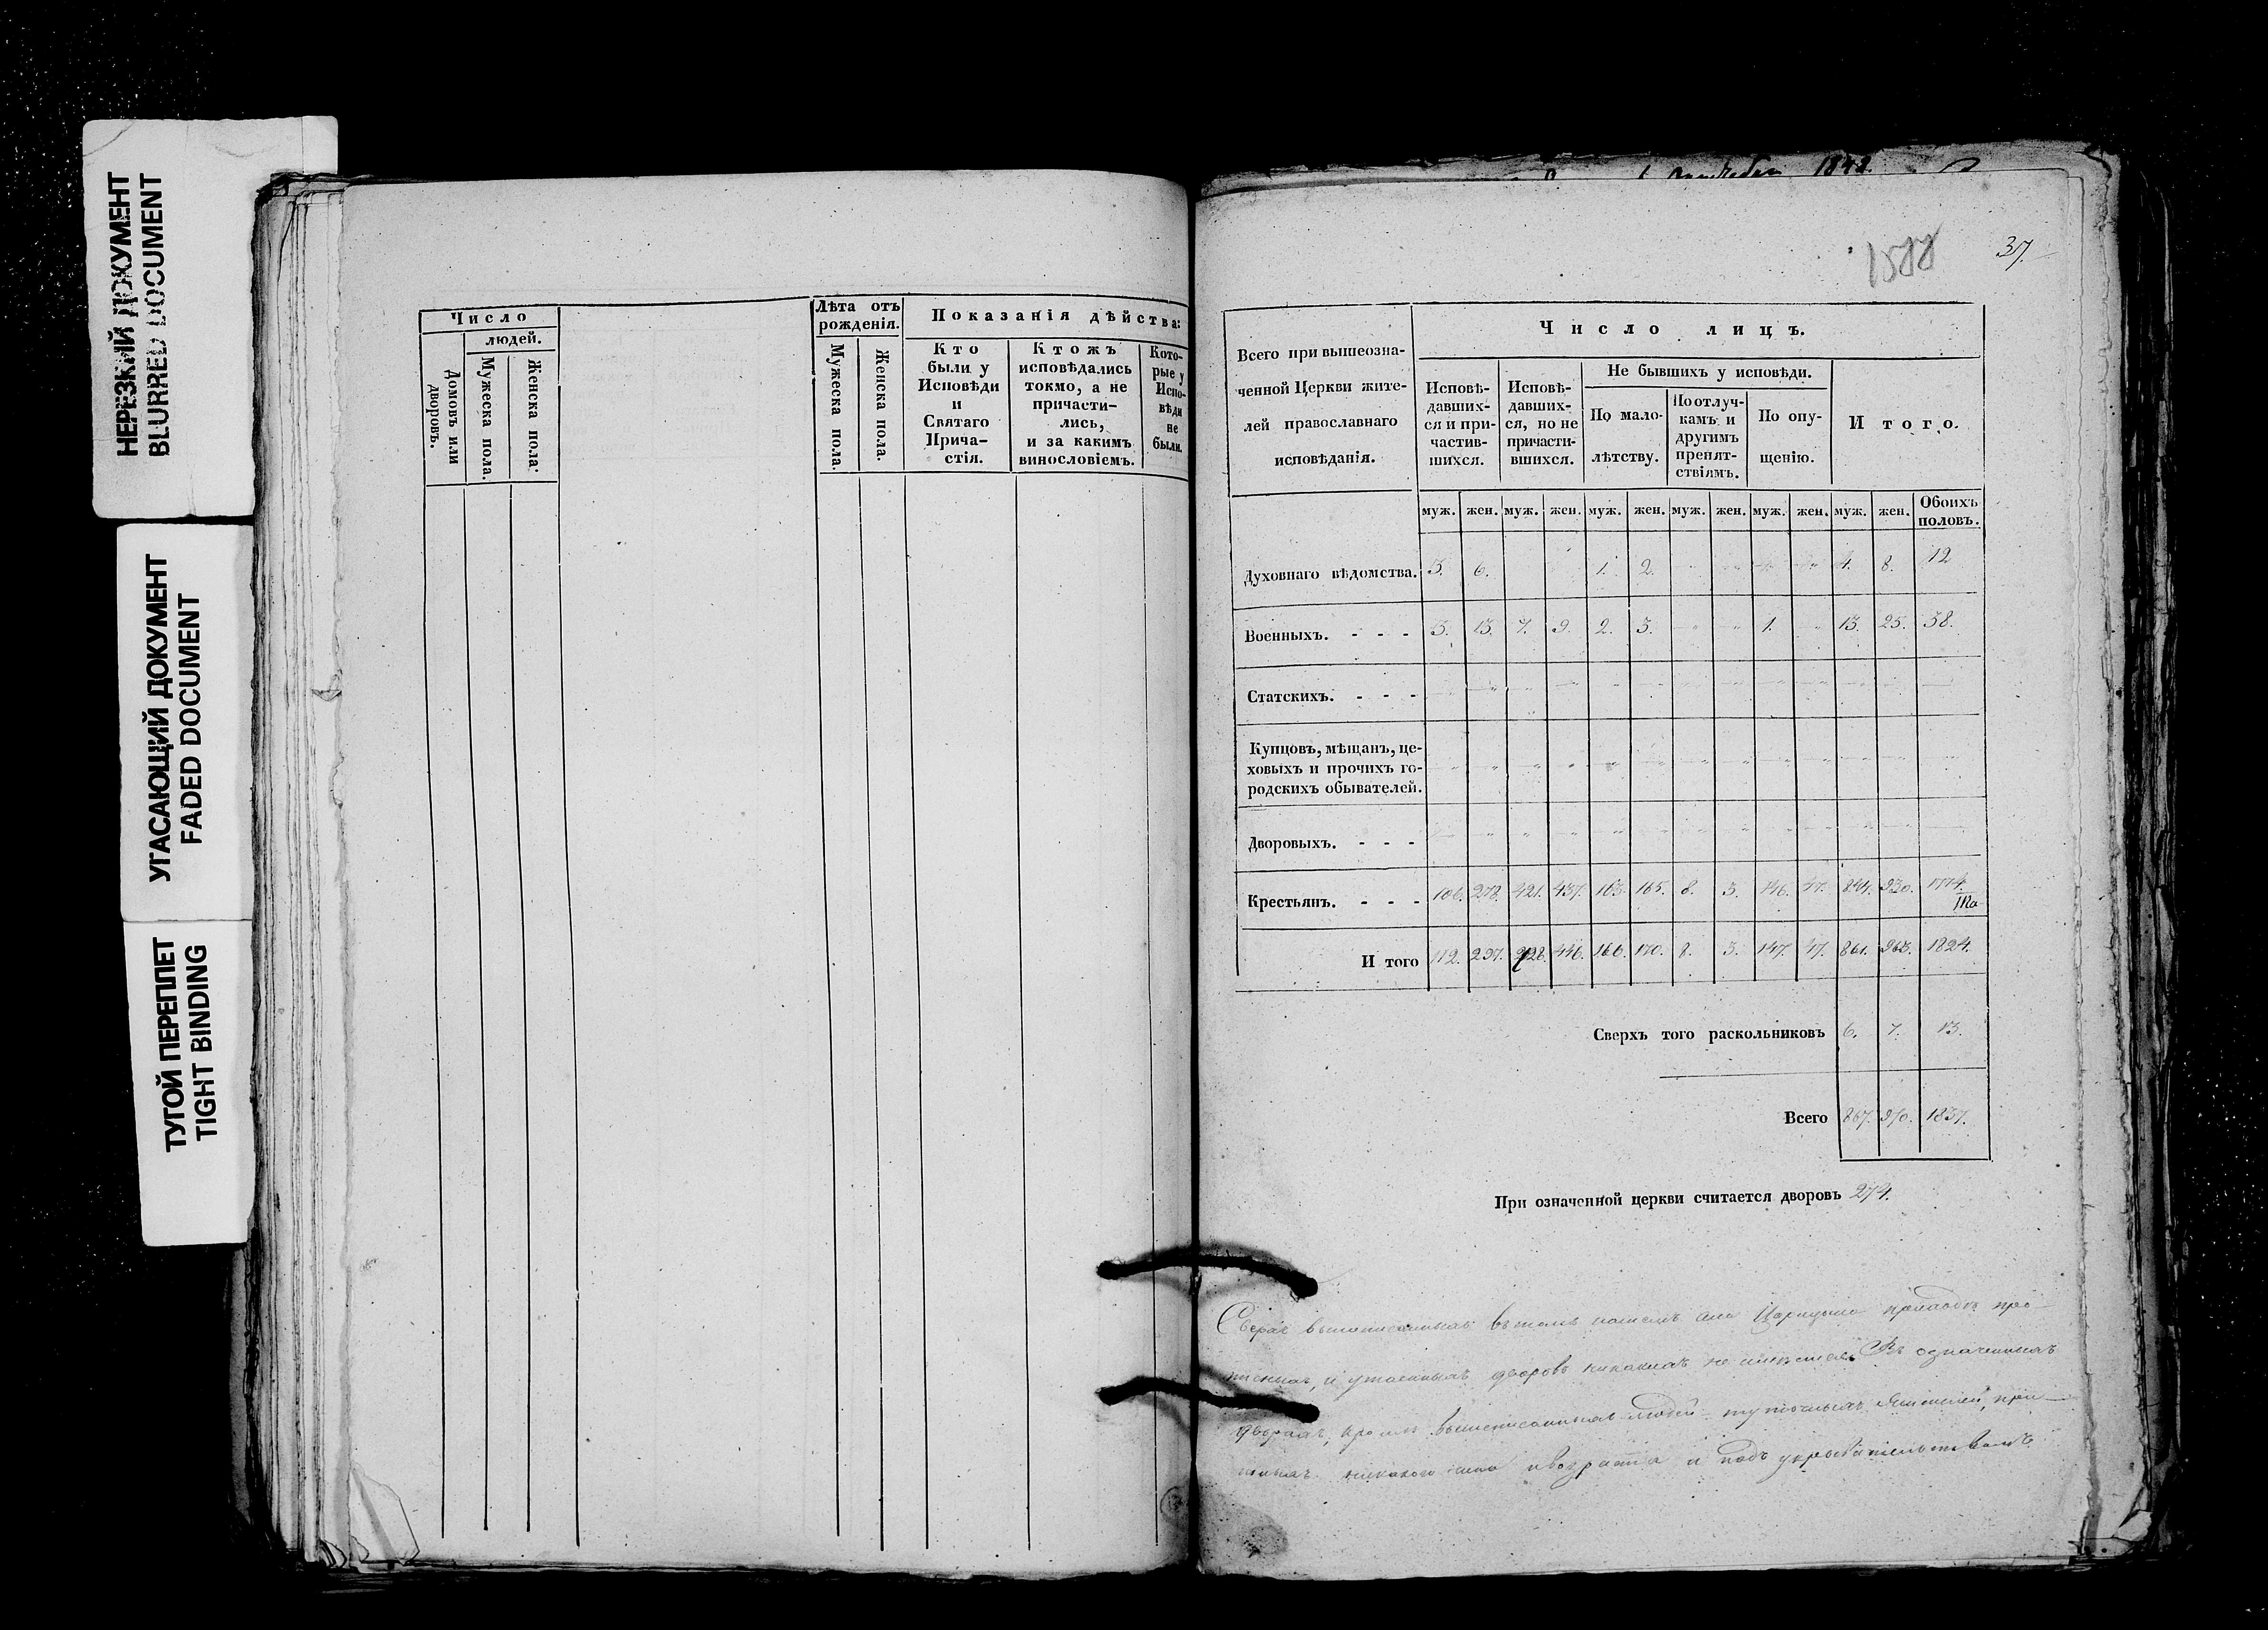 НЕРЕЗКИЙ ДОКУМЕНТ
BLURRED DOCUMENT
УГАСАЮЩИЙ ДОКУМЕНТ
FADED DOCUMENT
ТУГОЙ ПЕРЕПЛЕТ
TIGHT BINDING
Число
людей.
Домовъ или дворовъ.
Мужеска пола.
Женска пола.
Лѣта отъ
рожденія.
Мужеска пола.
Женска пола.
Показанія дѣйства:
Кто
были у
Исповѣди
и
Святаго
Прича-
стія.
Ктожъ
исповѣдались
токмо, а не
причасти-
лись,
и за какимъ
винословіемъ.
Кото-
рые у
Испо-
вѣди
не
были.
1842
37.
Всего при вышеозна-
ченной Церкви жите-
лей православнаго
исповѣданія.
Число лицъ.
Исповѣ-
давших-
ся и при-
частив-
шихся.
Исповѣ-
давших-
ся, но не
причасти-
вшихся.
Не бывшихъ у исповѣди.
По мало-
лѣтству.
По отлуч-
камъ и
другимъ
препят-
ствіямъ.
По опу-
щенію.
Итого.
муж. жен. муж. жен. муж. жен. муж. жен. муж. жен. муж. жен. Обоихъ половъ.
Духовнаго вѣдомства. 3. 6. 1. 2. 4. 8. 12
Военныхъ. - - - 3. 13. 7. 9. 2. 3. 1. 13. 25. 38.
Статскихъ. - - -
Купцовъ, мѣщанъ, це-
ховыхъ и прочихъ го-
родскихъ обывателей.
Дворовыхъ. - - -
Крестьянъ. - - - 106. 278. 421. 437. 163. 165. 8. 3. 146. 47. 844. 930. 1774.
И того 112. 297. 428. 446. 166. 170. 8. 3. 147. 47. 861. 963. 1824.
Сверхъ того раскольниковъ 6. 7. 13.
Всего 867. 970. 1837.
При означенной церкви считается дворовъ 274.
Сверхъ вышеписанныхъ въ томъ селѣ Царицынѣ приходскихъ
и утаенныхъ дворовъ никакихъ не имѣется. Въ означенныхъ
дворахъ, кромѣ вышеписанныхъ людей
никакого чина и возраста и подъ укрывательствомъ